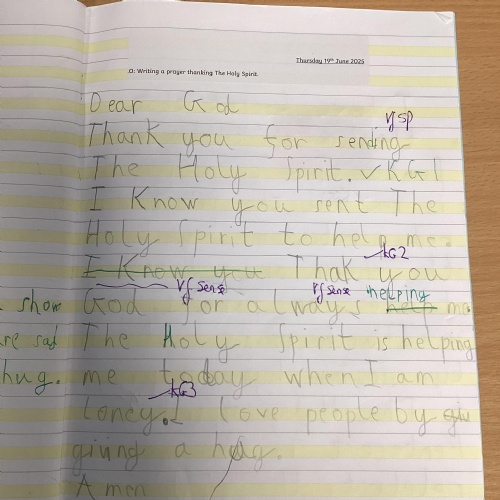 Thursday 19th June 2025
.O: Writing a prayer thanking The Holy Spirit.
Dear God
rf sp
Thank you for sending
The Holy Spirit. ✓ KG1
I Know you sent The
Holy Spirit to help me.
KG2
I Know you Thak you
rf sense rf sense helping
show God for always help me.
are sad The Holy Spirit is helping
hug. me today when I am
KG3
loney. I love people by
giving a hug.
Amen